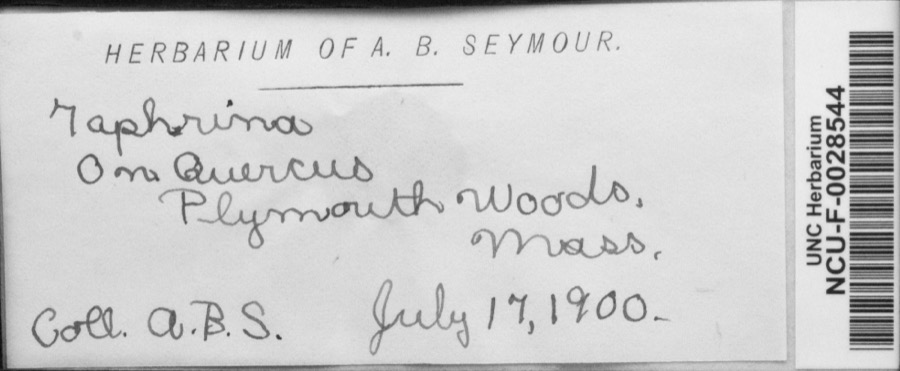 HERBARIUM OF A. B. SEYMOUR.
Taphrina
On Quercus
Plymouth Woods,
Mass.
Coll. A.B.S. July 17, 1900.
UNC Herbarium
NCU-F-0028544